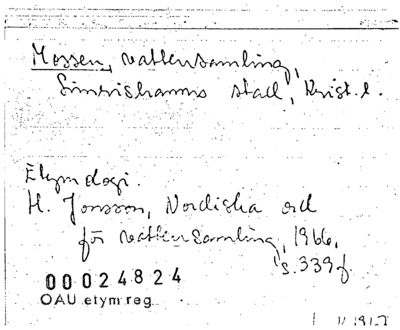 Mossen, vattensamling,
Simrishamns stad, Krist. l.
Etymologi.
H. Jonsson, Nordiska ord
för vattensamling, 1966,
s. 339 f.
00024824
OAU etym reg